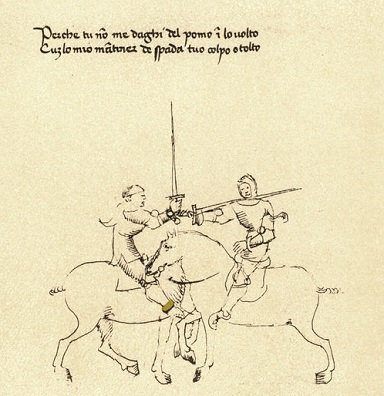 Perche tu nō me daghi del pomo ī lo volto
Cuz lo mio mātener de spada tuo colpo o tolto